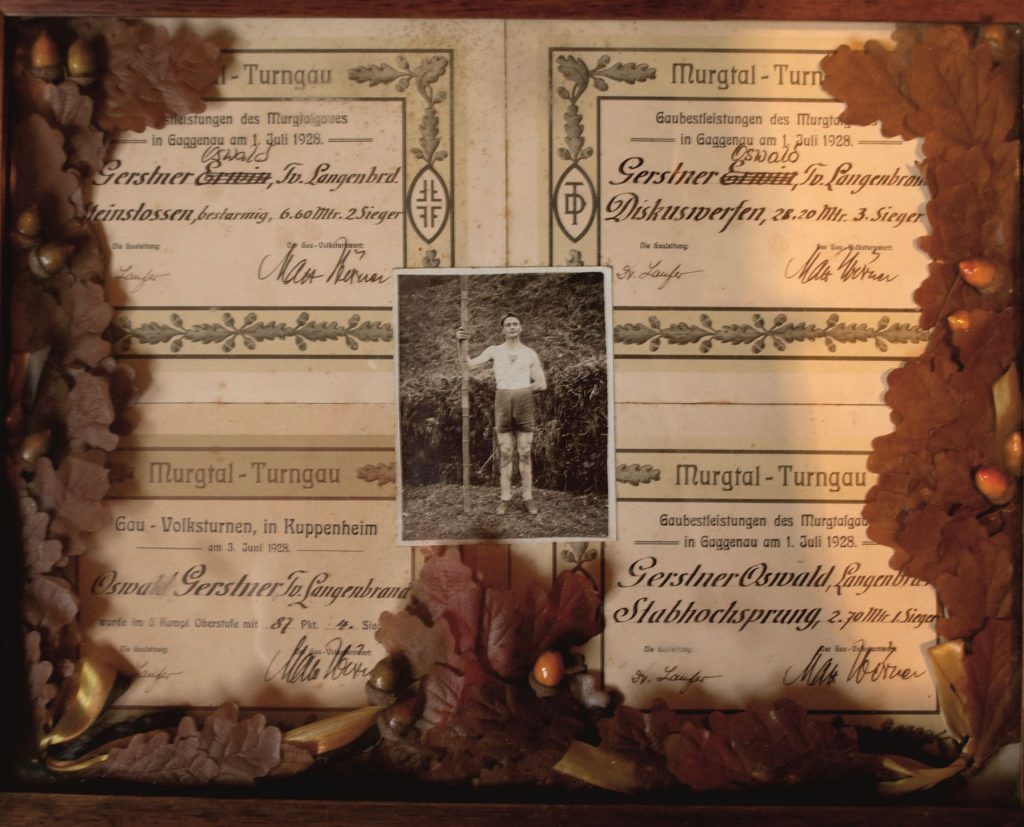 al - Turngau
stleistungen des Murgtalgaues
in Gaggenau am 1. Juli 1928.
Oswald
Gerstner Erwin, Tv. Langenbrd.
Steinstossen, bestarmig, 6.60 Mtr. 2 Sieger
Die Gauleitung: Der Gau-Volksturnwart:
Laufer Max Wörner
Murgtal - Turn
Gaubestleistungen des Murgtalgaues
in Gaggenau am 1. Juli 1928.
Oswald
Gerstner Erwin, Tv. Langenbran
Diskuswerfen, 28.20 Mtr. 3. Sieger
Die Gauleitung: Der Gau-Volksturnwart:
Dr. Laufer Max Wörner
Murgtal - Turngau
Gau - Volksturnen, in Kuppenheim
am 3. Juni 1928.
Oswald Gerstner Tv. Langenbrand
wurde im 6 Kampf Oberstufe mit 87 Pkt. 4. Sie
Die Gauleitung: Der Gau-Volksturnwart:
Laufer Max Wör
Murgtal - Turngau
Gaubestleistungen des Murgtalgau
in Gaggenau am 1. Juli 1928.
Gerstner Oswald, Langenbran
Stabhochsprung, 2.70 Mtr 1. Sieger
Die Gauleitung: Der Gau-Volksturnwart:
Dr. Laufer Max Wörner